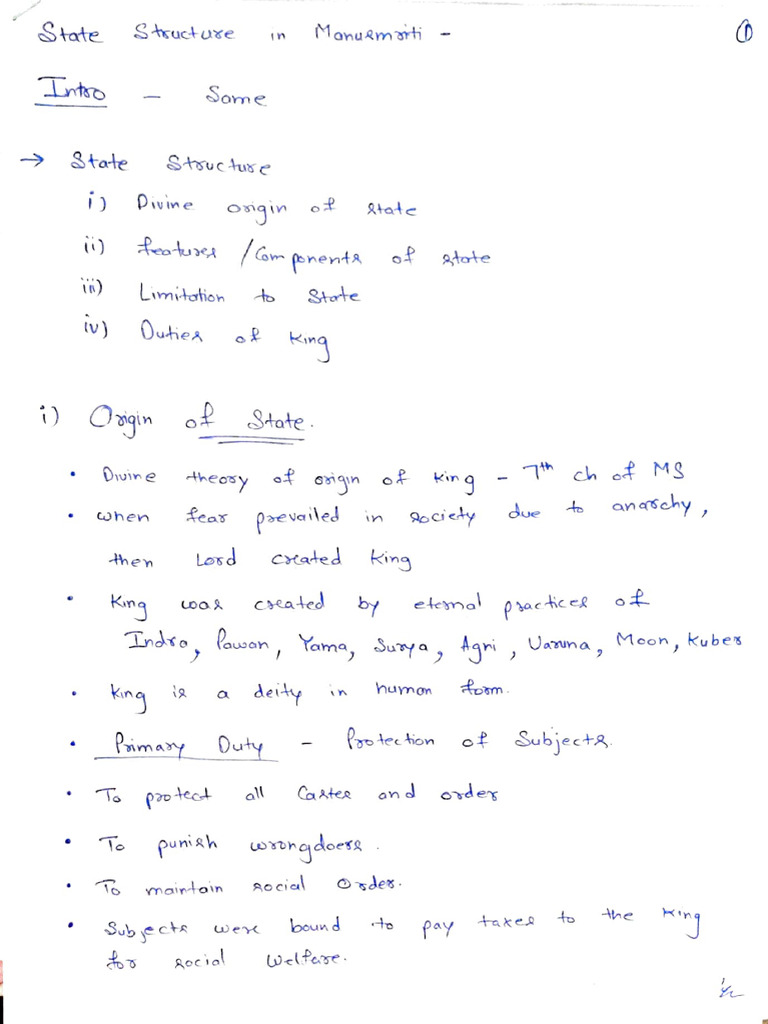 State Structure in Manusmriti - ①
Intro - Same
→ State Structure
i) Divine origin of state
ii) features / Components of state
iii) Limitation to State
iv) Duties of King
i) Origin of State.
• Divine theory of origin of king - 7th ch of MS
• when fear prevailed in society due to anarchy,
then Lord created King
• King was created by eternal practices of
Indra, Pawan, Yama, Surya, Agni, Varuna, Moon, Kuber
• King is a deity in human form.
• Primary Duty - Protection of Subjects.
• To protect all Castes and order
• To punish wrongdoers.
• To maintain social Order.
• Subjects were bound to pay taxes to the King
for social Welfare.